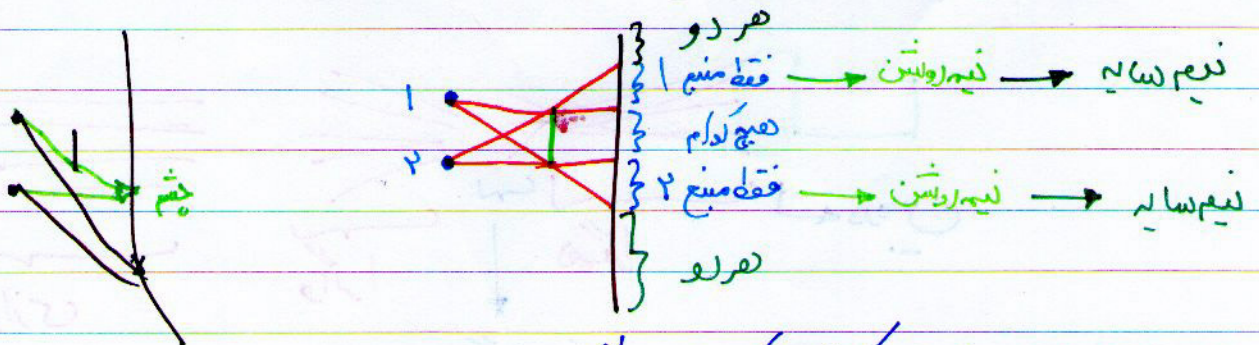 هر دو
۱ فقط منبع ۱ نیمه روشن نیم سایه
هیچ کدام
۲ فقط منبع ۲ نیمه روشن نیم سایه
چشم
هر دو